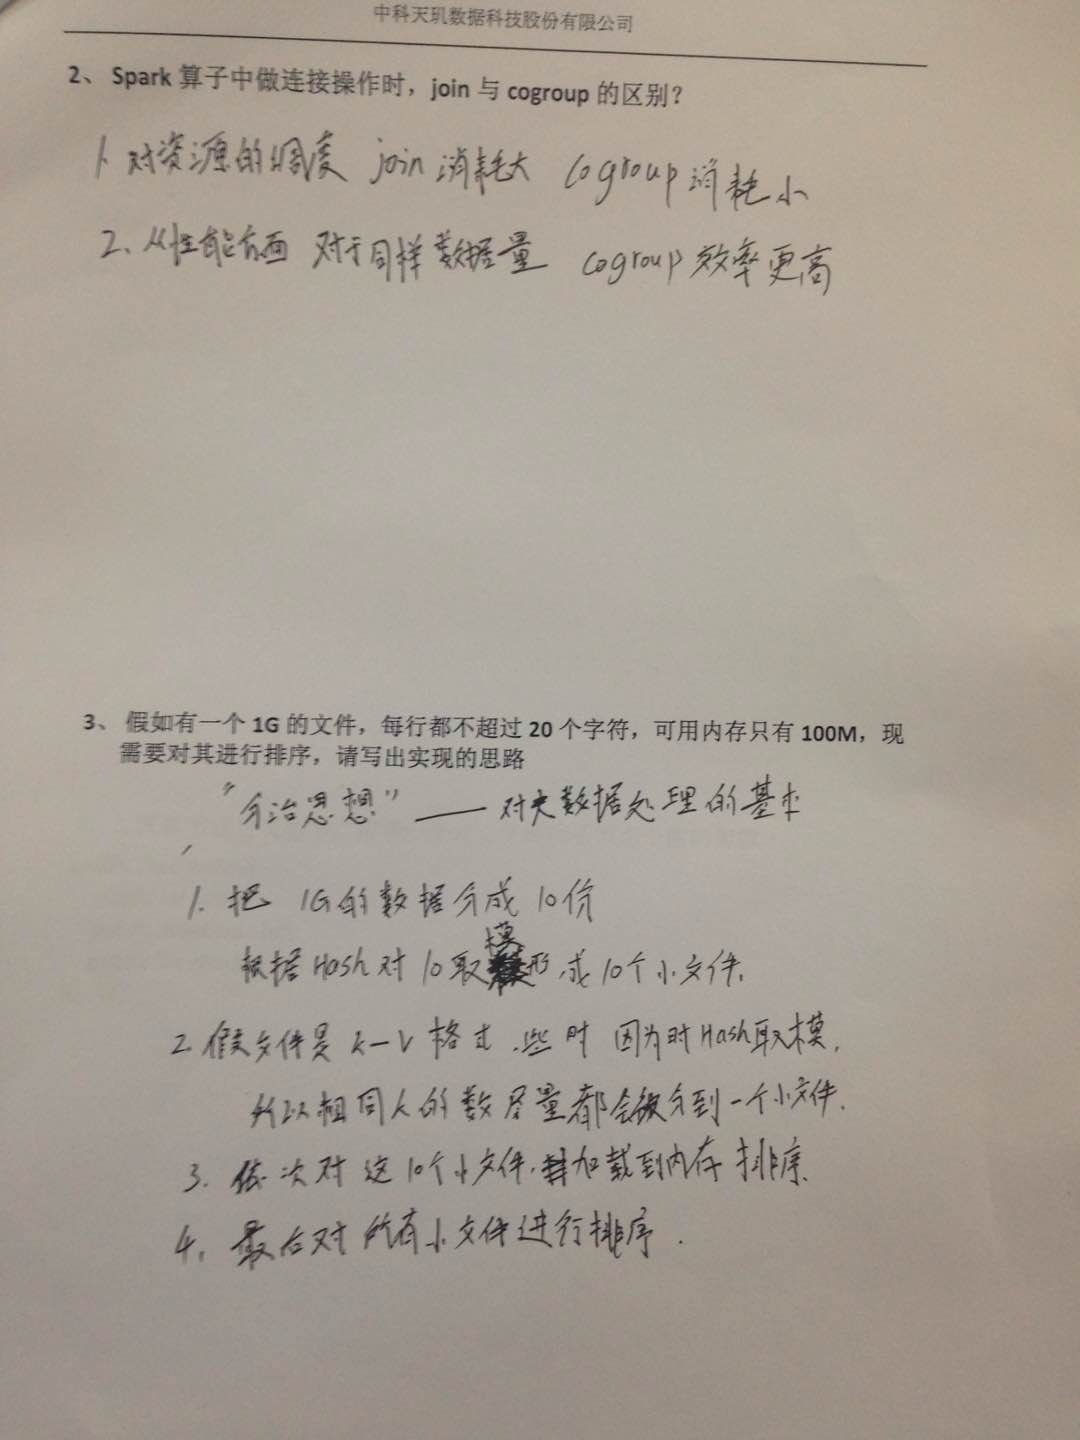 中科天玑数据科技股份有限公司
2、 Spark 算子中做连接操作时，join 与 cogroup 的区别？
1、对资源的调度 join 消耗大 cogroup 消耗小
2、从性能方面 对于同样数据量 cogroup 效率更高
3、 假如有一个 1G 的文件，每行都不超过 20 个字符，可用内存只有 100M，现
需要对其进行排序，请写出实现的思路
"分治思想" —— 对大数据处理的基本
1. 把 1G的数据分成10份
根据Hash对10取模形成10个小文件.
2. 假文件是 k-v 格式, 些时 因为时Hash取模,
所以相同k的数尽量都会被分到一个小文件.
3. 依次对这10个小文件, 加载到内存 排序.
4. 最后对所有小文件进行排序.